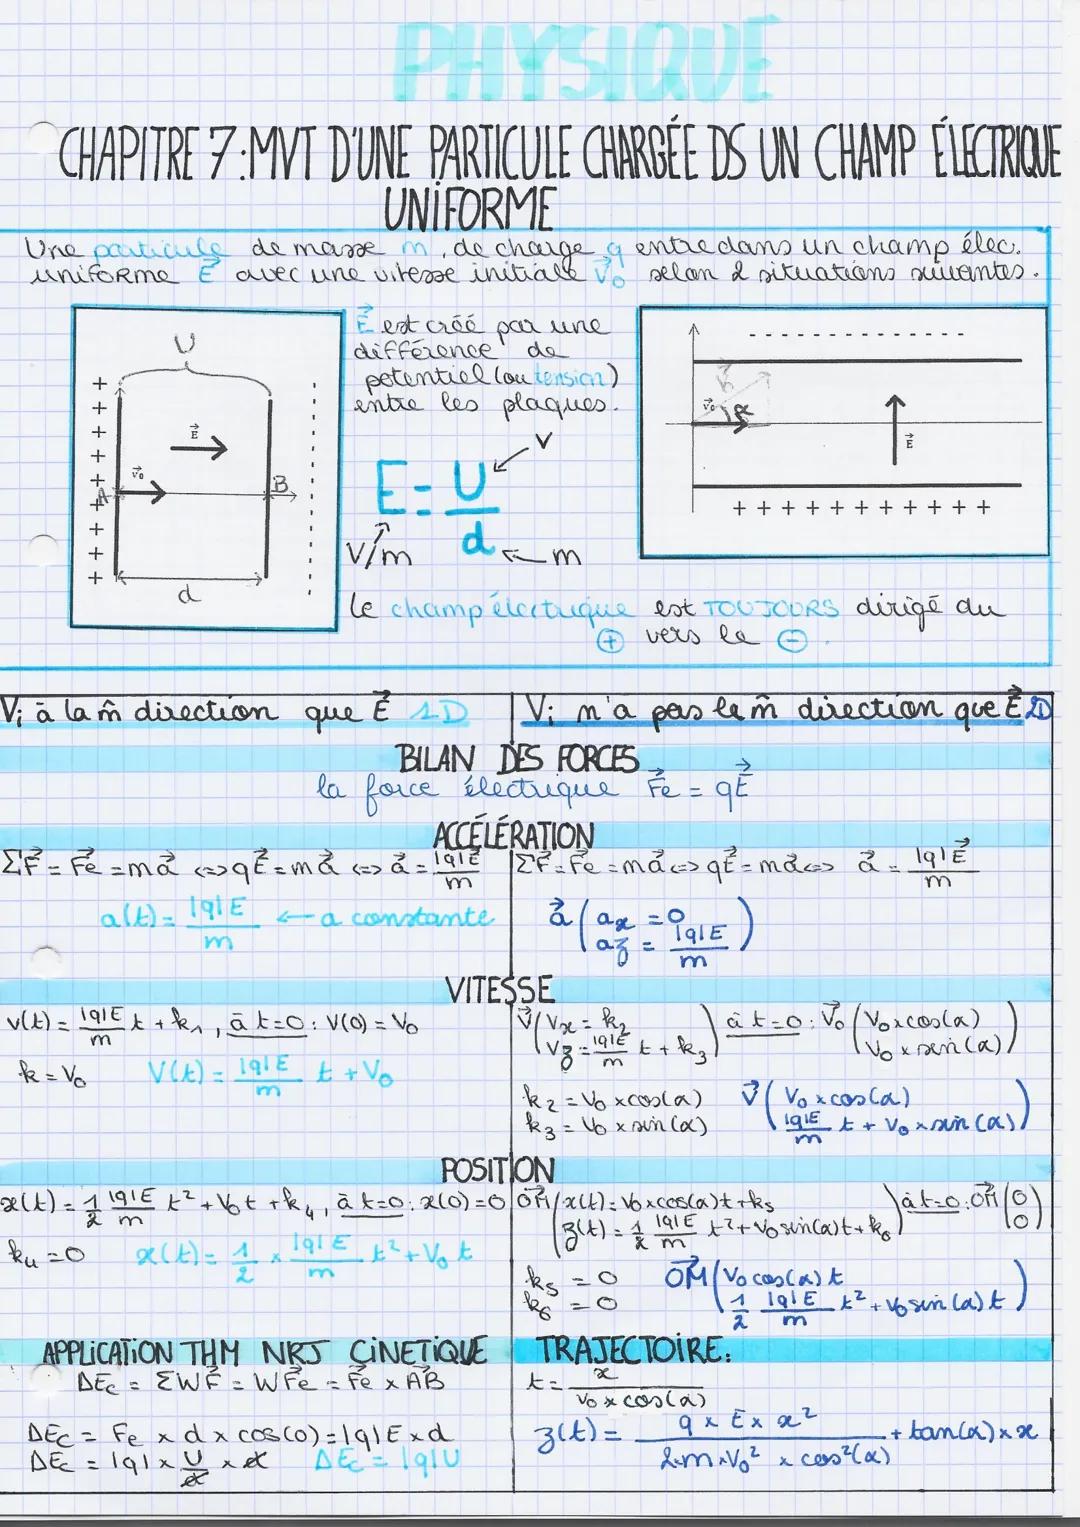 PHYSIQUE
CHAPITRE 7: MVT D'UNE PARTICULE CHARGÉE DS UN CHAMP ÉLECTRIQUE
UNIFORME
Une particule de masse m, de charge q entre dans un champ élec.
uniforme E⃗ avec une vitesse initiale v⃗₀ selon 2 situations suivantes.
U
+ + + + + + + + +
E⃗
v⃗₀
A
B
d
E⃗ est créé par une
différence de
potentiel (ou tension)
entre les plaques.
E = U/d
V
V/m
m
- - - - - - - - - - - - -
v⃗₀
α
E⃗
+ + + + + + + + + + +
Le champ électrique est TOUJOURS dirigé du
⊕ vers le ⊖.
Vi à la m̂ direction que E⃗ 1D
Vi n'a pas la m̂ direction que E⃗ 2D
BILAN DES FORCES
la force électrique F⃗e = qE⃗
ACCÉLÉRATION
ΣF⃗ = F⃗e = ma⃗ <=> qE⃗ = ma⃗ <=> a⃗ = |q|E⃗/m
a(t) = |q|E/m ← a constante
ΣF⃗ = F⃗e = ma⃗ <=> qE⃗ = ma⃗ <=> a⃗ = |q|E⃗/m
a⃗ ( ax = 0
az = |q|E/m )
VITESSE
v(t) = |q|E/m t + k₁, à t=0 : V(0) = V₀
k = V₀ V(t) = |q|E/m t + V₀
V⃗ ( Vx = k₂
Vz = |q|E/m t + k₃ ) à t=0 : V⃗₀ ( V₀ x cos(α)
V₀ x sin(α) )
k₂ = V₀ x cos(α)
k₃ = V₀ x sin(α)
V⃗ ( V₀ x cos(α)
|q|E/m t + V₀ x sin(α) )
POSITION
x(t) = 1/2 |q|E/m t² + V₀t + k₄, à t=0 : x(0) = 0
k₄ = 0 x(t) = 1/2 x |q|E/m t² + V₀ t
OM⃗ ( x(t) = V₀ x cos(α)t + k₅
z(t) = 1/2 |q|E/m t² + V₀ sin(α)t + k₆ ) à t=0 : OM⃗ ( 0
0 )
k₅ = 0
k₆ = 0
OM⃗ ( V₀ cos(α) t
1/2 |q|E/m t² + V₀ sin(α) t )
APPLICATION THM NRJ CINETIQUE
ΔEc = ΣWF⃗ = WF⃗e = F⃗e x AB⃗
ΔEc = Fe x d x cos(0) = |q|E x d
ΔEc = |q| x U/d x d ΔEc = |q|U
TRAJECTOIRE:
t = x/(V₀ x cos(α))
z(t) = (q x E x x²)/(2 x m x V₀² x cos²(α)) + tan(α) x x